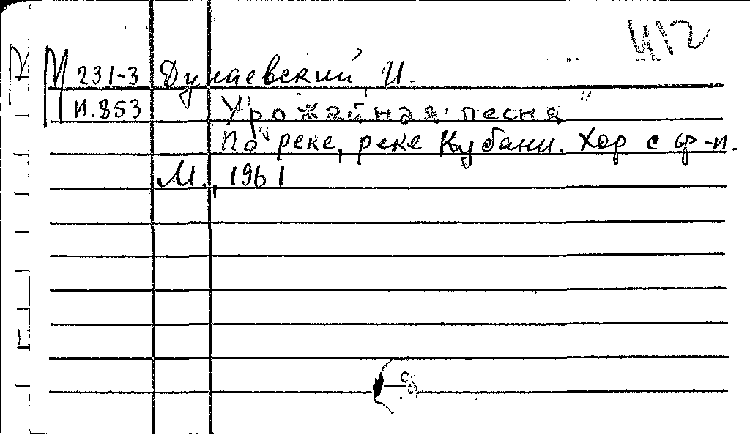 412
М 231-3 Дунаевский И.
И.853 Урожайная песня
По реке, реке Кубани. Хор с ф-п.
М., 1961